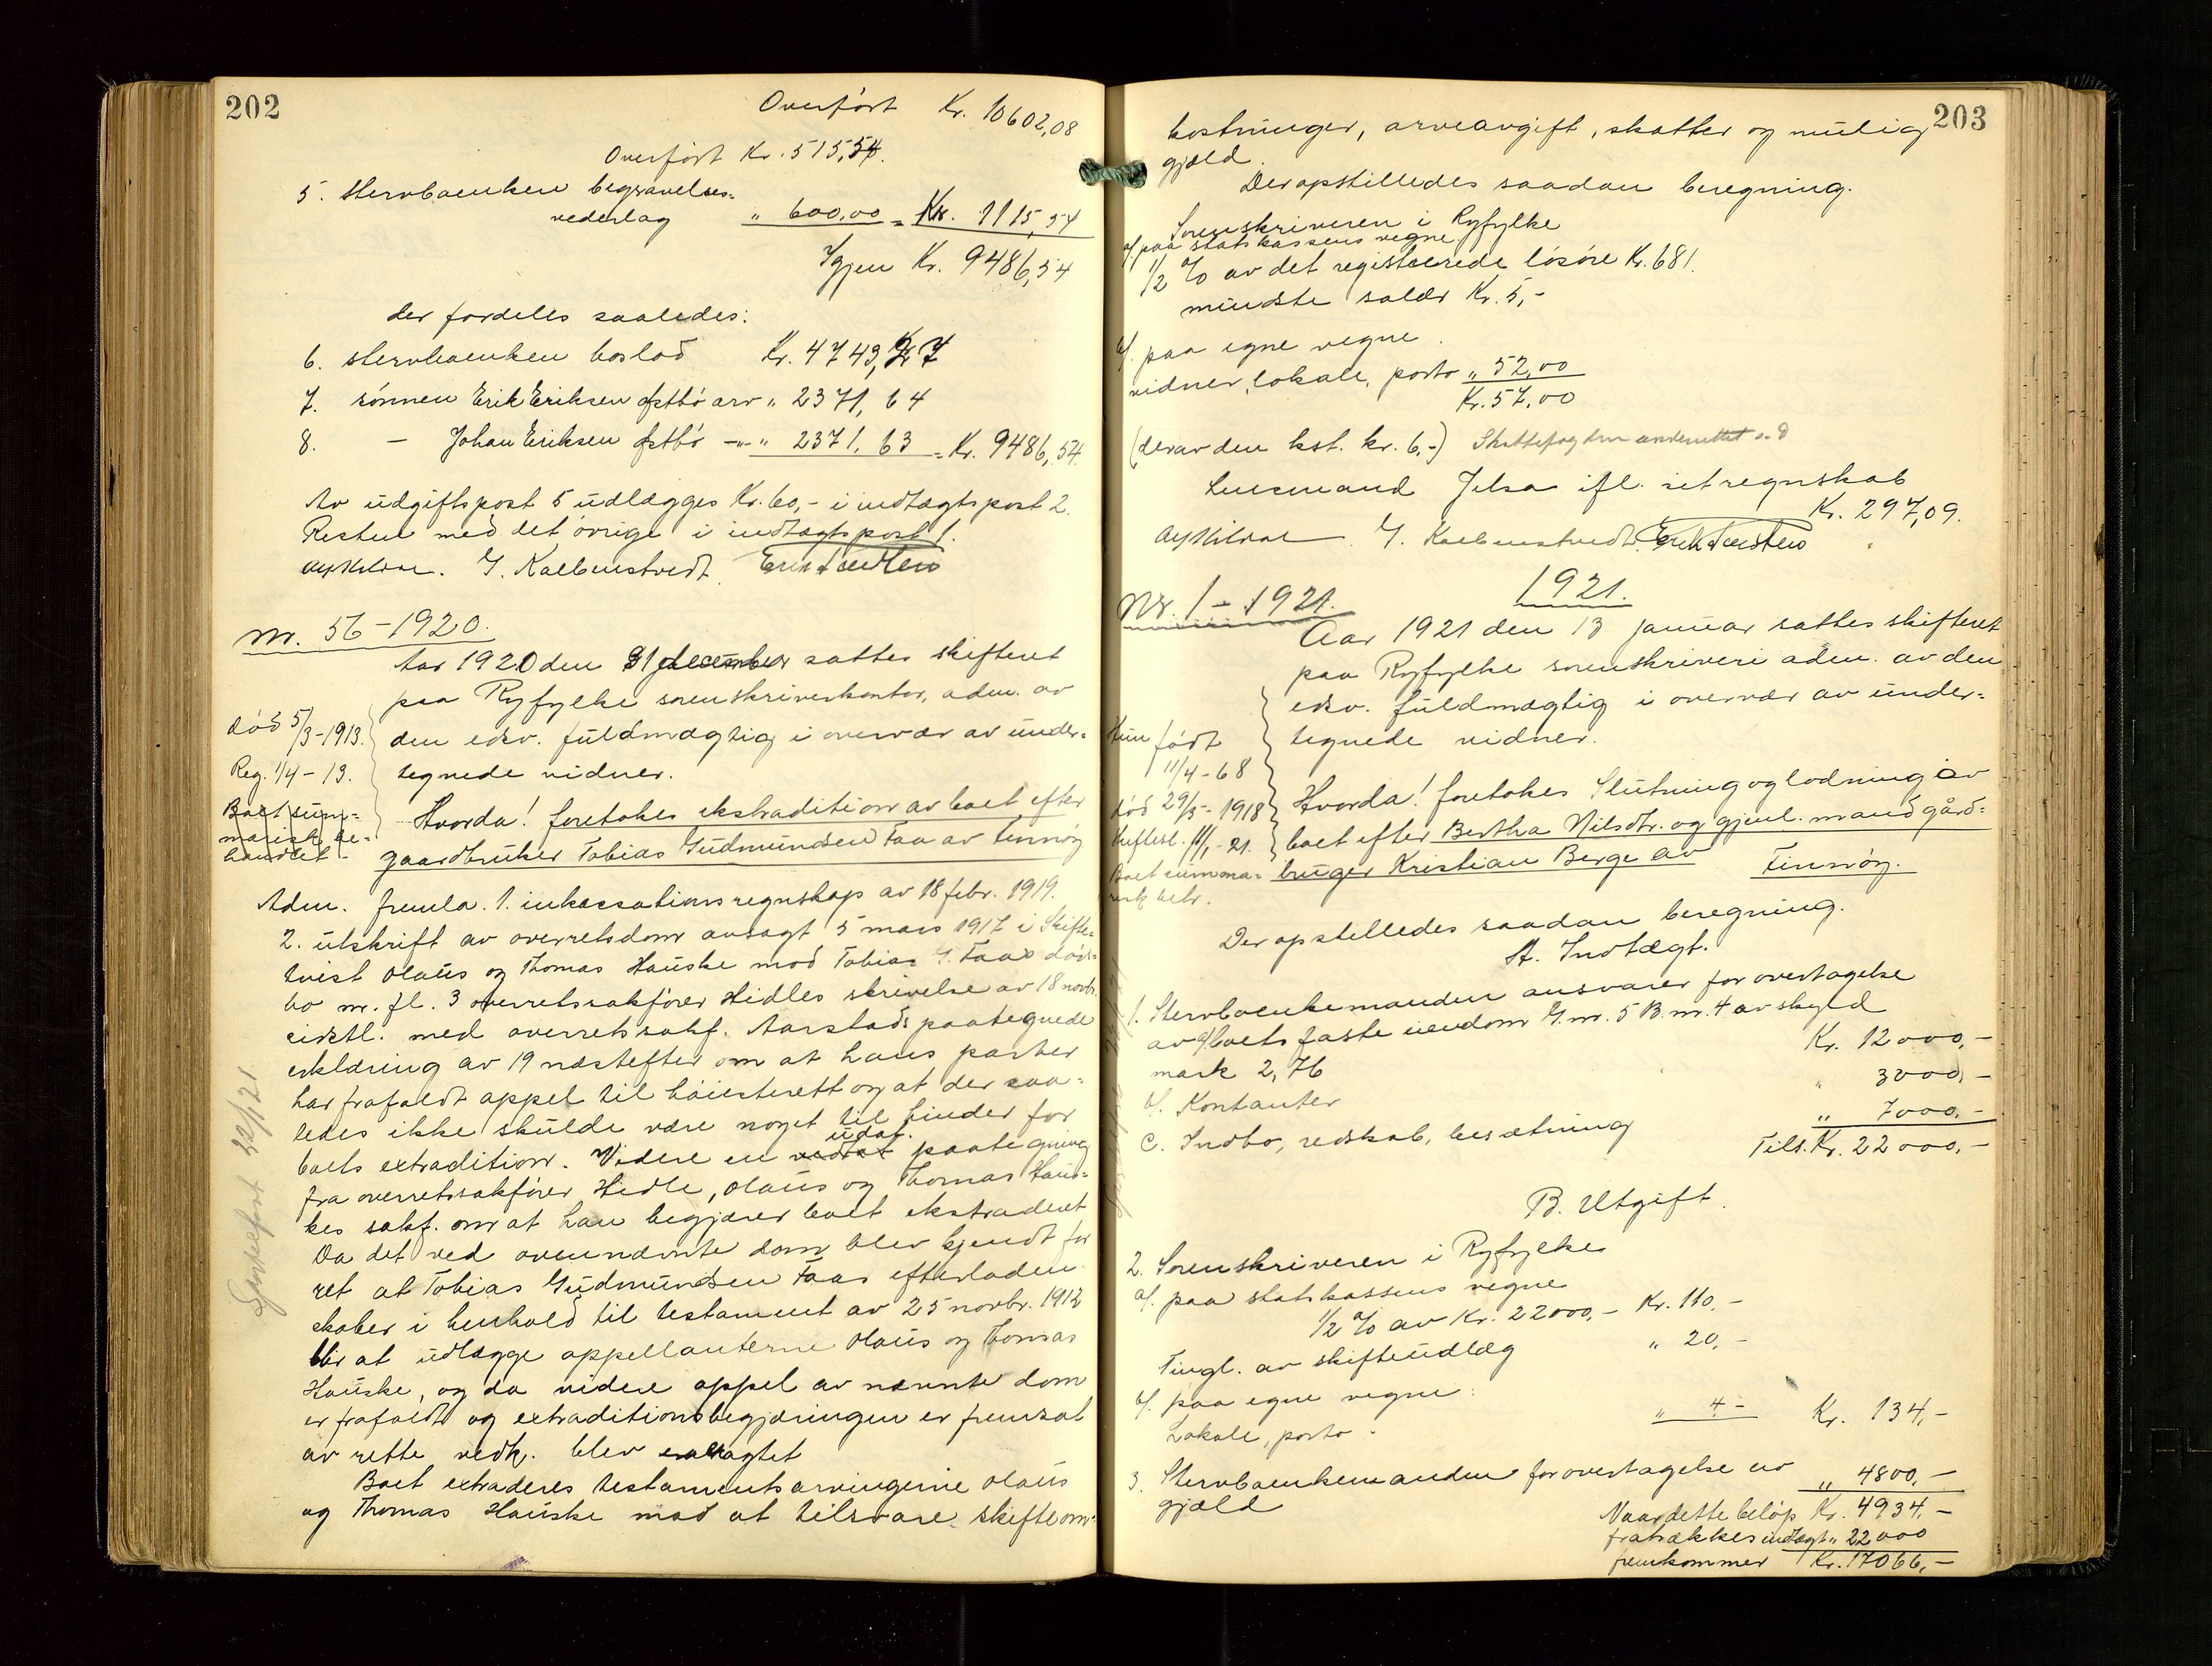 202
Overført Kr. 10602,08
Overført Kr. 515,54.
5. Stervboenken begravelses-
vederlag " 600,00 = Kr. 1115,54
Igjen Kr. 9486,54
der fordeles saaledes:
6. stervboenken boslod Kr. 4743,27
7. sønnen Erik Eriksen Østbø arv " 2371,64
8. — Johan Eriksen Østbø —"— " 2371,63 = Kr. 9486,54.
Av üdgiftspost 5 üdlægges Kr. 60,- i indtægtspost 2.
Resten med det øvrige i indtægtspost 1.
G. Kolbenstvedt.
Nr. 56-1920.
Aar 1920 den 31 december sattes skifteret
paa Ryfylke sorenskriverkontor, adm. av
den edsv. füldmægtig i overvær av ünder-
tegnede vidner.
død 5/3-1913.
Reg. 1/4-13.
Boet süm-
marisk be-
handlet.
Hvorda! foretokes ekstradition av boet efter
gaardbruker Tobias Güdmündsen Faa av Finnøy
Adm. fremla. 1. inkassationsregnskap av 18 febr. 1919.
2. ütskrift av overretsdom avsagt 5 mars 1917 i Skifte-
tvist Olaüs og Thomas Haüske mod Tobias G. Faas døds-
bo m. fl. 3 overretssakfører Hidles skrivelse av 18 novbr.
sidstl. med overretssakf. Aarstads paategnede
erklæring av 19 næstefter om at hans parter
har frafaldt appel til høiesterett og at der saa-
ledes ikke skülde være noget til hinder for
boets extradition. Videre en vedtat üdat. paategning
fra overretssakfører Hidle, Olaüs og Thomas Haüs-
kes sakf. om at han begjærer boet ekstraderet
Da det ved ovennævnte dom blev kjendt for
ret at Tobias Güdmündsen Faas efterladen-
skaber i henhold til testament av 25 novbr. 1912
blir at üdlægge appellanterne Olaüs og Thomas
Haüske, og da videre appel av nævnte dom
er frafaldt og extraditionsbegjæringen er fremsat
av rette vedk. blev
Boet extraderes testamentsarvingerne Olaüs
og Thomas Haüske mod at tilsvare skifteom-
203
kostninger, arveavgift, skatter og mülig
gjæld.
Der opstilledes saadan beregning.
Sorenskriveren i Ryfylke
a/. paa statskassens vegne
1/2 % av det registrerede løsøre Kr. 681.
mindste salær Kr. 5,-
b/. paa egne vegne.
vidner, lokale, porto " 52,00
Kr. 57,00
(derav den kst. kr. 6,-) Skattefogden underrettet
Lensmand Jelsa ifl. sit regnskab
Kr. 297,09.
G. Kolbenstvedt.
1921.
Nr. 1-1921.
Aar 1921 den 13 januar sattes skifteret
paa Ryfylke sorenskriveri adm. av den
edsv. füldmægtig i overvær av ünder-
tegnede vidner.
Hun født
11/4-68
død 29/3-1918
Boet summa-
risk beh.
Hvorda! foretokes Slütning og lodning av
boet efter Bertha Nilsdtr. og gjenl. mand gård-
brüger Kristian Berge av Finnøy.
Der opstilledes saadan beregning.
A. Indtægt.
1. Stervboenkemanden ansvarer for overtagelse
av a/ boets faste eiendom G.nr. 5 B.nr. 4 av skyld
mark 2,76 Kr. 12000,-
b/. Kontanter " 3000,-
c. Indbo, redskab, besætning " 7000,-
Tils. Kr. 22000,-
B. Utgift.
2. Sorenskriveren i Ryfylke
a/. paa statskassens vegne
1/2 % av Kr. 22000,- Kr. 110,-
Tingl. av skifteüdlæg " 20,-
b/. paa egne vegne:
Lokale, porto. " 4,- Kr. 134,-
3. Stervboenkemanden for overtagelse av
gjæld " 4800,-
Naar dette beløp Kr. 4934,-
fratrækkes indtægt " 22000
fremkommer Kr. 17066,-